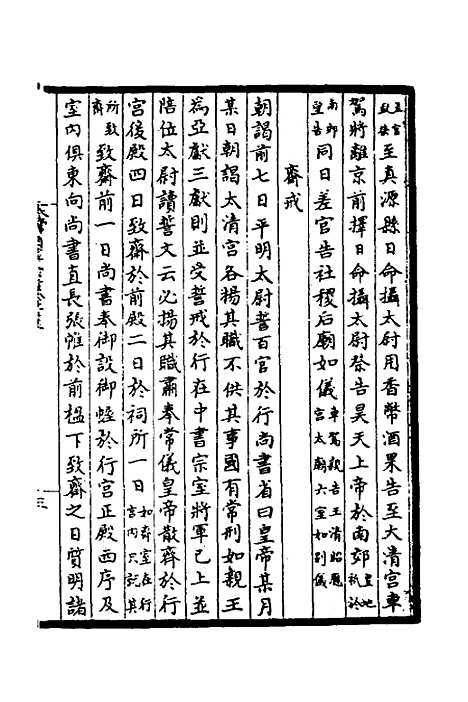 至真源縣日命攝太尉用香幣酒果告至太清宮車
駕將離京前擇日命攝太尉祭告昊天上帝於南郊皇地祇於
同日差官告社稷后廟如儀車駕親告玉清昭應宮太廟六室如別儀
齋戒
朝謁前七日平明太尉誓百官於行尚書省曰皇帝某月
某日朝謁太清宮各揚其職不供其事國有常刑如親王
為亞獻三獻則並受誓戒於行在中書宗室將軍已上並
陪位太尉讀誓文云必揚其職肅奉常儀皇帝散齋於行
宮後殿四日致齋於前殿二日於祠所一日如齋室在行宮內只記其
所致齋致齋前一日尚書奉御設御幄於行宮正殿西序及
室內俱東向尚書直長張帷於前楹下致齋之日質明諸